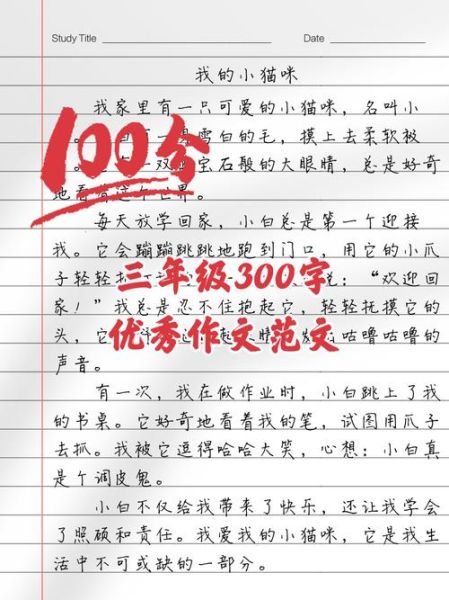 Study Title
Date
我的小猫咪
我家里有一只可爱的小猫咪，名叫小
雪白的毛，摸上去柔软被
100分
双 宝石般的大眼睛，总是好奇
地看着这个世界。
每天放学回家，小白总是第一个迎接
我。它会蹦蹦跳跳地跑到门口，用它的小爪
子轻轻 说：“欢迎回
三年级300字
家！”我总是忍不住抱起它，轻轻抚摸它的
头，它 咕噜咕噜的
优秀作文范文
声音。
有一次，我在做作业时，小白跳上了我
的书桌。它好奇地看着我的笔，试图用爪子
去抓。我被它逗得哈哈大笑，心想：小白真
是个调皮鬼。
小白不仅给我带来了快乐，还让我学会
了照顾和责任。我爱我的小猫咪，它是我生
活中不可或缺的一部分。